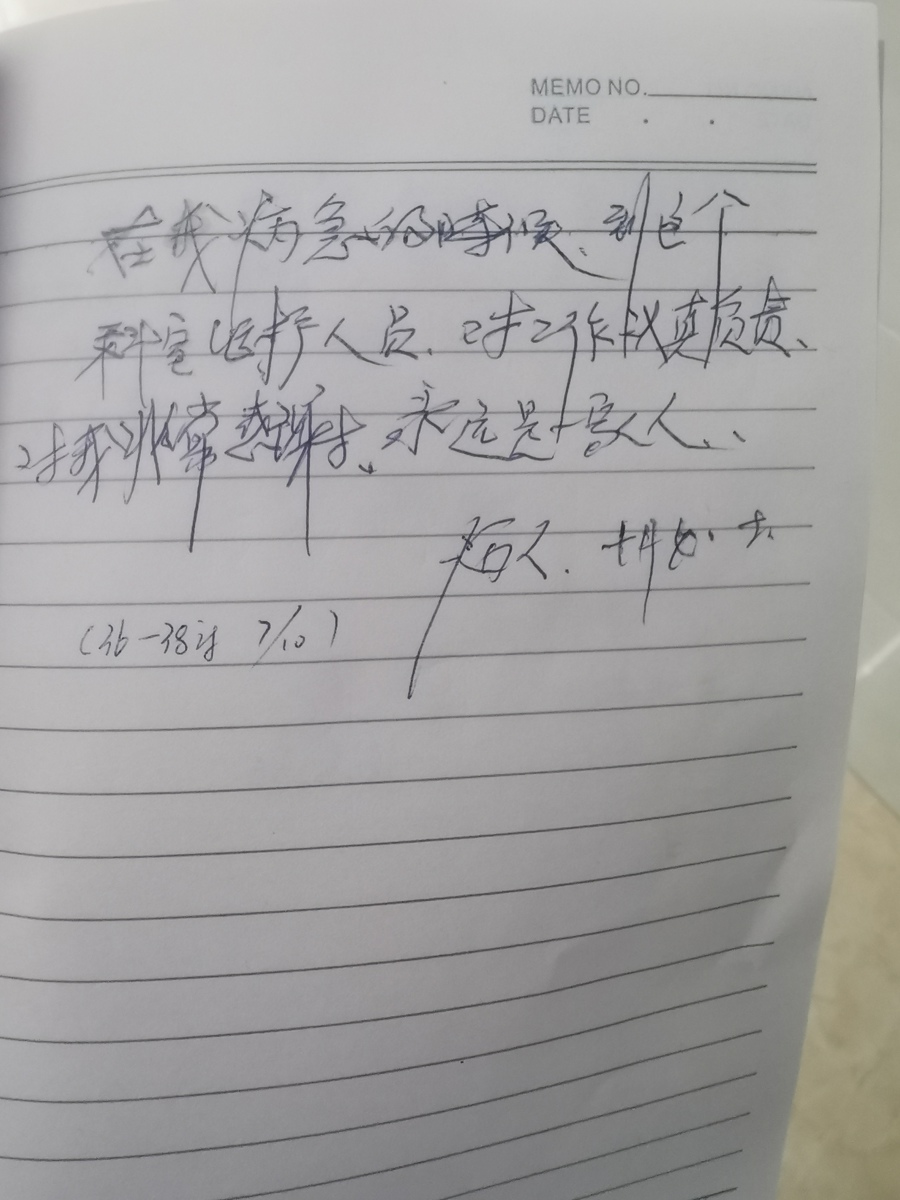 MEMO NO.
DATE . .
在我病急的時候、到这个
科室医护人员、对工作认真负责、
对我非常感谢、永远是一家人、
病人、
(36-38床 7/10)